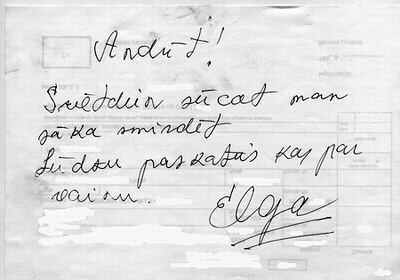 Andri!
Svētdien sūcat man
sāka smirdēt
Lūdzu paskaties kas par
vainu.
Elga